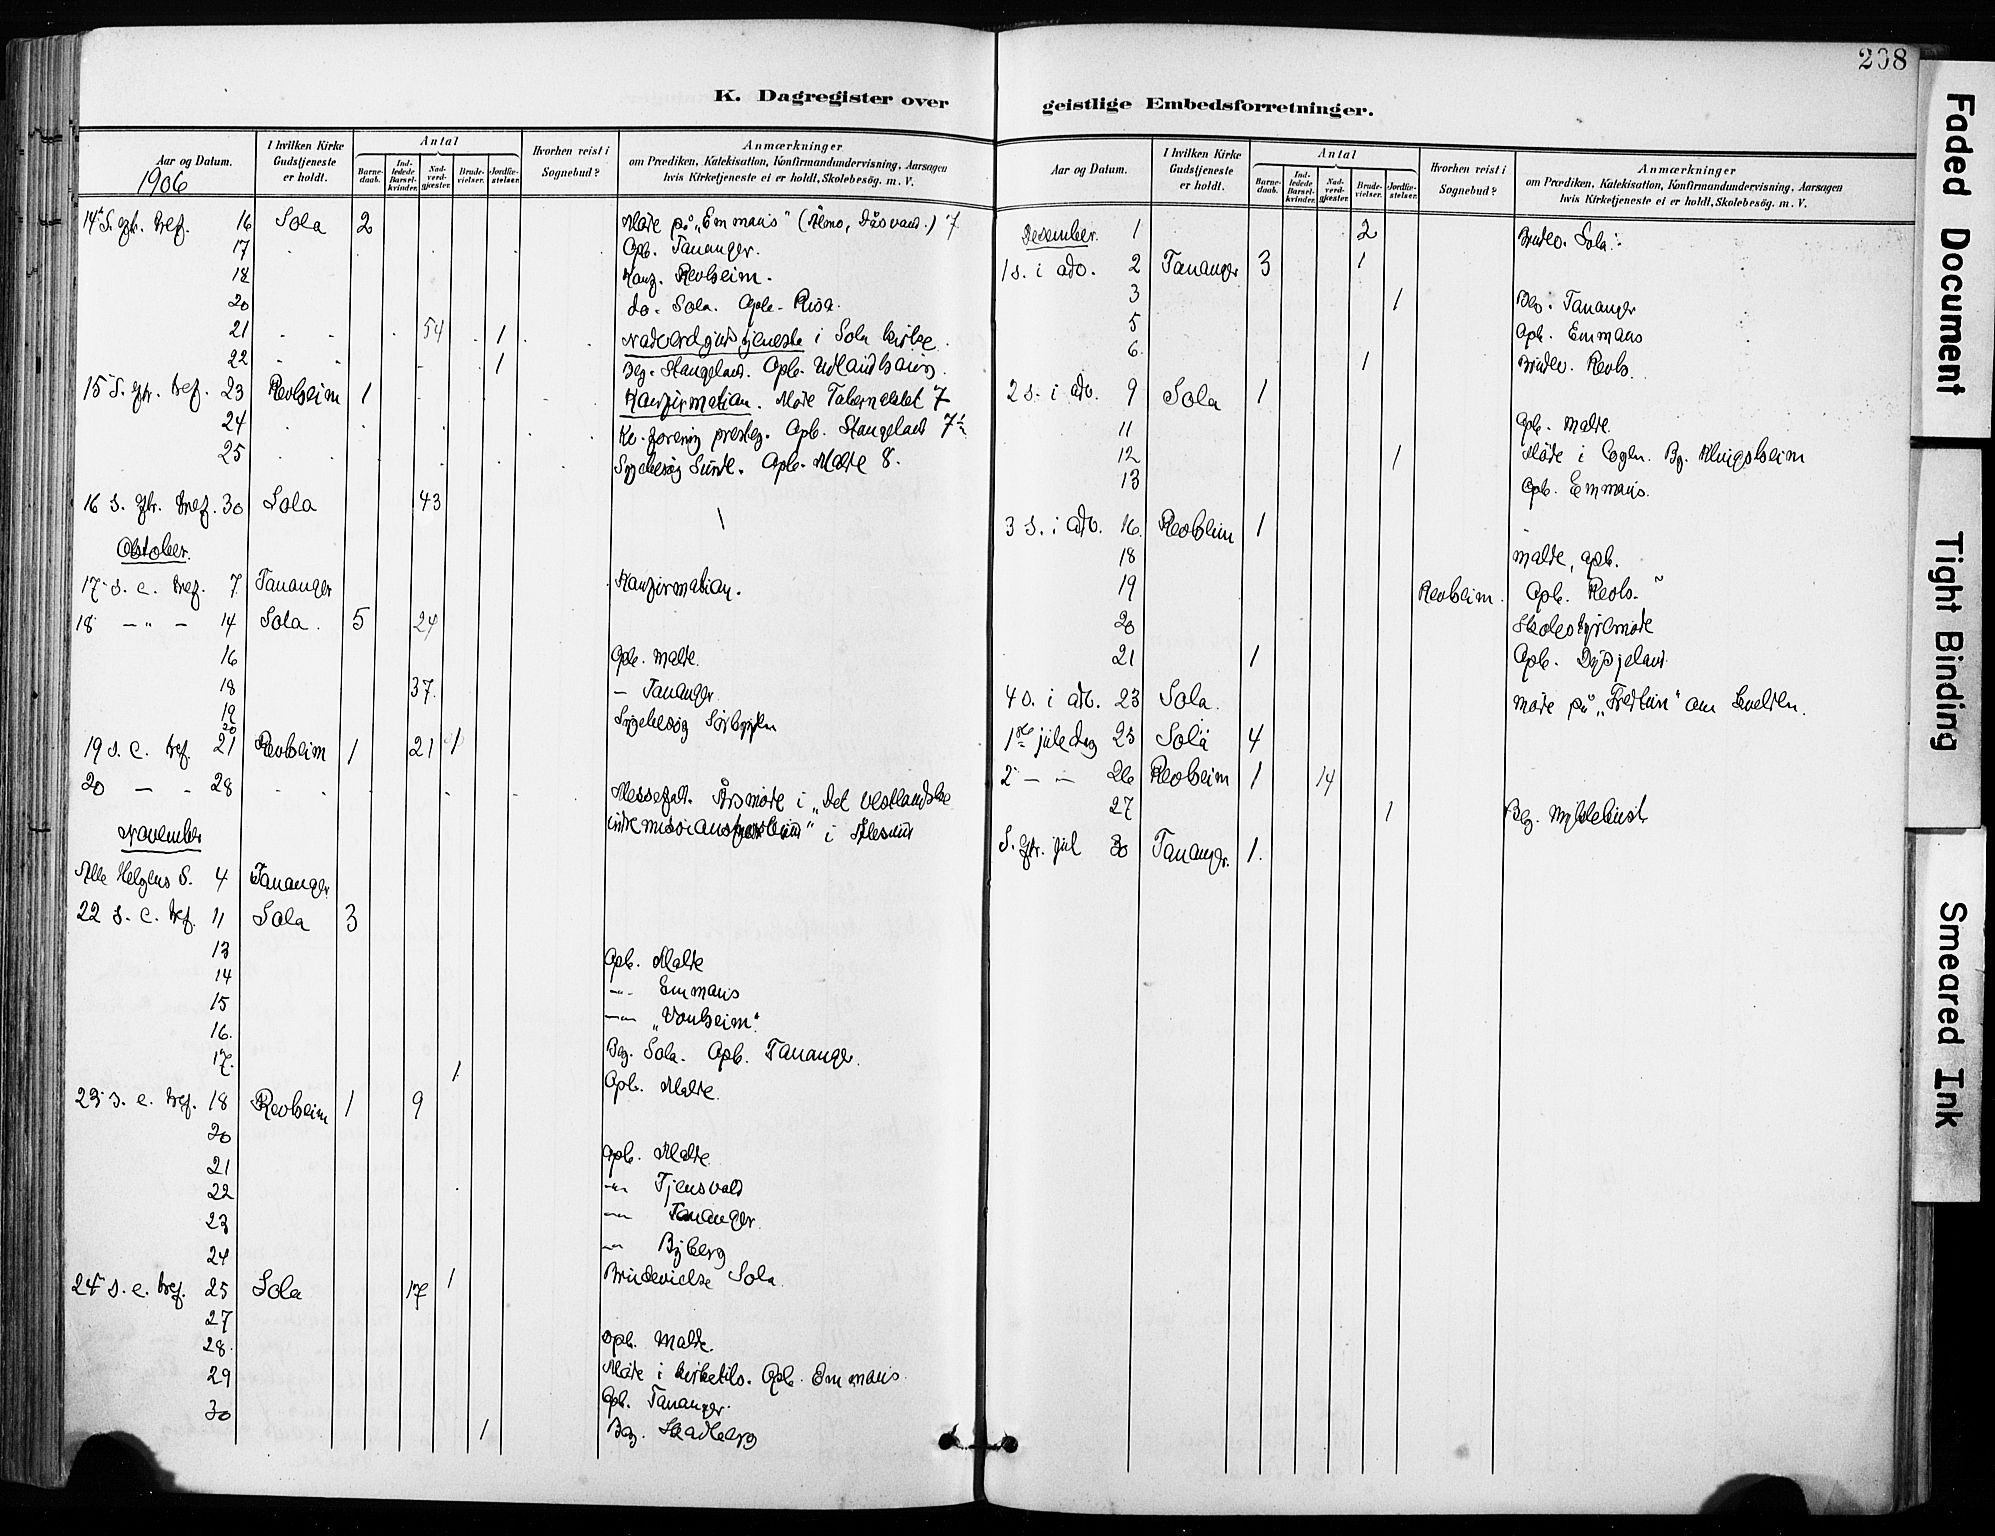 208
K. Dagregister over geistlige Embedsforretninger.
Aar og Datum.
1906
I hvilken Kirke Gudstjeneste er holdt.
Antal
Barnedaab.
Indledede Barselkvinder.
Nadverdgjester.
Brudevielser.
Jordfæstelser.
Hvorhen reist i Sognebud?
Anmærkninger
om Prædiken, Katekisation, Konfirmandundervisning, Aarsagen
hvis Kirketjeneste ei er holdt, Skolebesøg. m. V.
14 S. eftr. tref. 16 Sola 2 Møde på „Emmaus" 7
17 Opb. Tananger.
18 Revheim.
20 do. Sola. Opb. Risa.
21 54 1 i Sola kirke.
22 1 Beg. Stangeland. Opb.
15 S. eftr. tref. 23 Revheim 1 Konfirmation. Møde 7
24 Opb. Stangeland 7
25 Sygebesøg Sunde. Opb. Malde 8.
16 S. eftr. tref. 30 Sola 43
Oktober.
17 s. e. tref. 7 Tananger Konfirmation.
18 — „ — 14 Sola. 5 24
16 Opb. Malde.
18 37. — Tananger.
19 Sygebesøg
20
19 s. e. tref. 21 Revheim 1 21 1
20 — - 28 Messefald. Årsmøde i „Det vestlandske
i Ålesund
November
Alle Helgens S. 4 Tananger
22 s. e. tref. 11 Sola 3
13 Opb. Malde
14 -„- Emmaus
15 -„- „Vonheim"
16. Beg. Sola. Opb. Tananger.
17. 1 Opb. Malde.
23 s. e. tref. 18 Revheim 1 9
20 Opb. Malde.
21 -„- Tjensvold
22 -„- Tananger.
23 -„- Byberg
24 1 Brudevielse Sola
24 s. e. tref. 25 Sola 17
27 Opb. Malde.
28. Møde i kirketils. Opb. Emmaus.
29 Opb. Tananger.
30 1 Beg. Skadberg
Aar og Datum.
I hvilken Kirke Gudstjeneste er holdt.
Antal
Barnedaab.
Indledede Barselkvinder.
Nadverdgjester.
Brudevielser.
Jordfæstelser.
Hvorhen reist i Sognebud?
Anmærkninger
om Prædiken, Katekisation, Konfirmandundervisning, Aarsagen
hvis Kirketjeneste ei er holdt, Skolebesøg. m. V.
Desember. 1 2 Brudev. Sola.
1 s. i adv. 2 Tananger 3 1
3 1 Beg. Tananger
5 Opb. Emmaus
6. 1 Brudev. Revh.
2 s. i adv. 9 Sola 1
11 Opb. Malde.
12 1 Møde i Beg. Klingsheim
13 Opb. Emmaus.
3 s. i adv. 16 Revheim 1
18 Malde, opb.
19 Revheim. Opb. Revh.
20 Skolestyremøde
21 1 Opb. Dysjeland.
4 s. i adv. 23 Sola. Møde på „Fredtun" om kvelden.
1ste juledag 25 Sola 4
2 — — 26 Revheim 1 14
27 1 Beg. Myklebust
S. eftr. jul 30 Tananger. 1.
Faded Document
Tight Binding
Smeared Ink